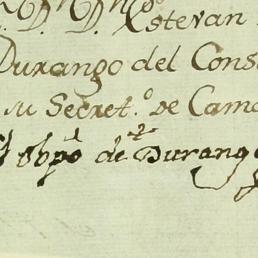 Estevan
Durango del Cons
su Secret.º de Cama
Obpo de Durango